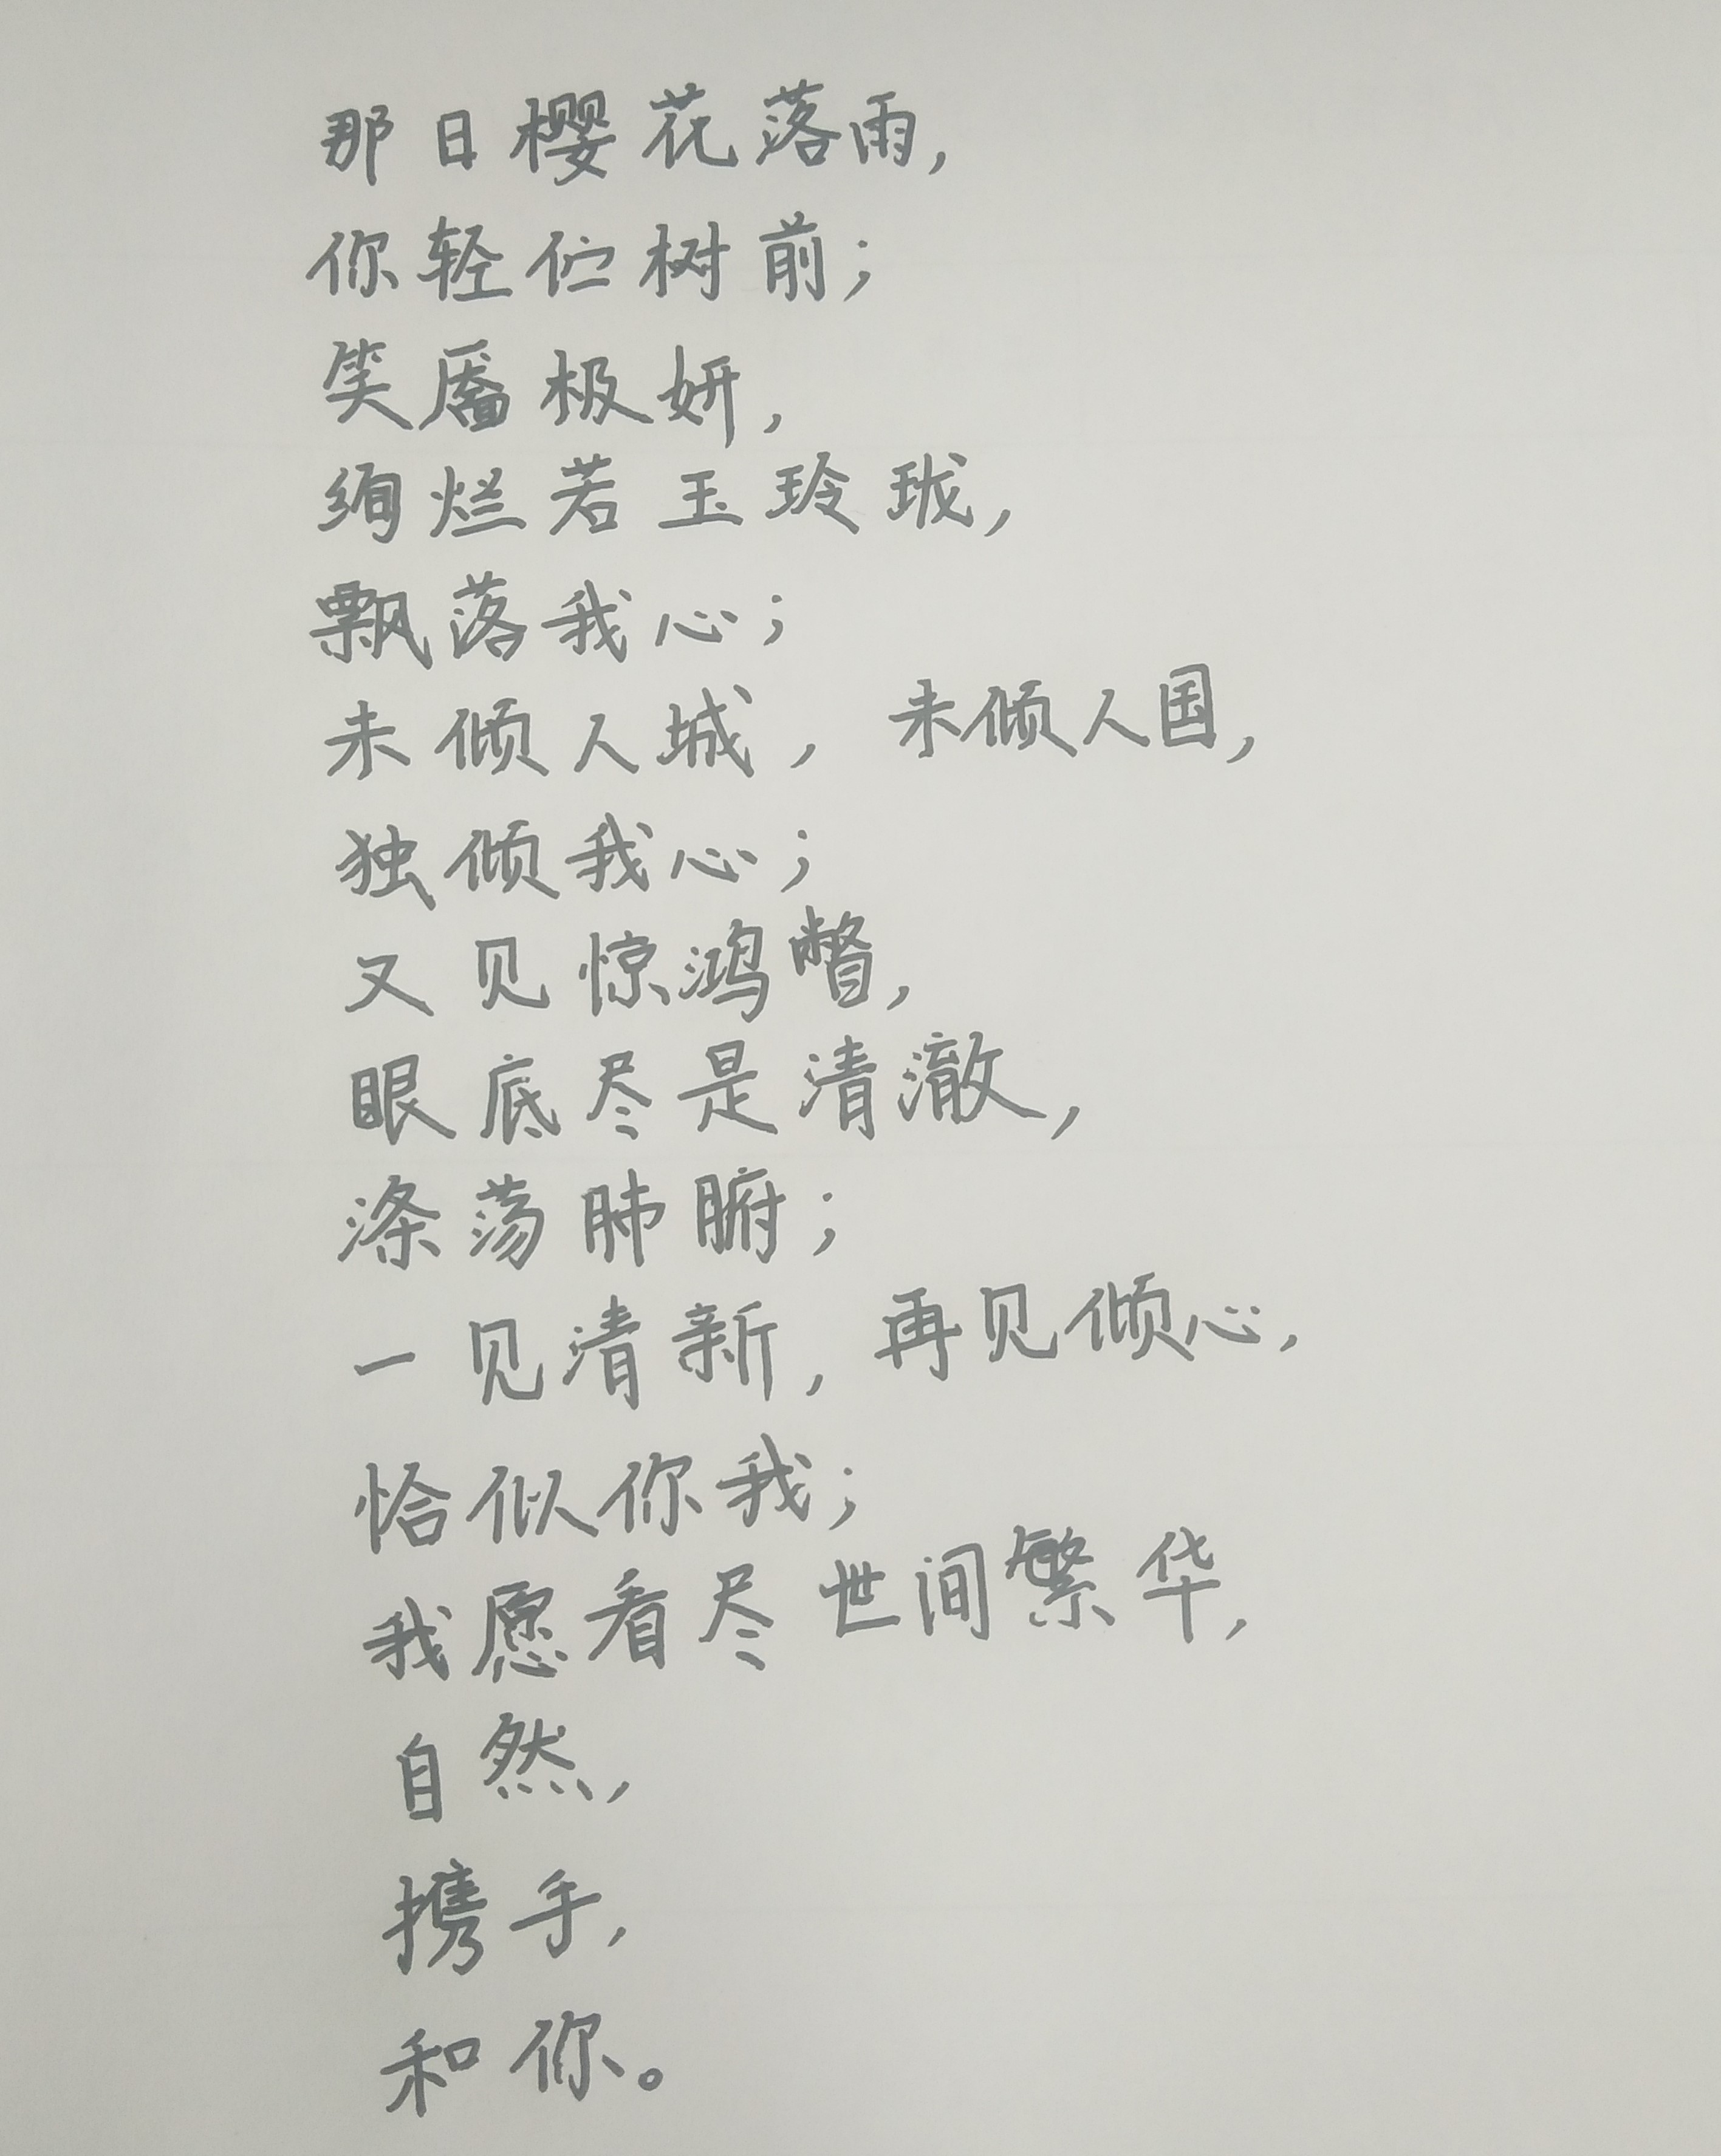 那日樱花落雨，
你轻伫树前；
笑靥极妍，
绚烂若玉玲珑，
飘落我心；
未倾人城，未倾人国，
独倾我心；
又见惊鸿瞥，
眼底尽是清澈，
涤荡肺腑；
一见清新，再见倾心，
恰似你我；
我愿看尽世间繁华，
自然，
携手，
和你。